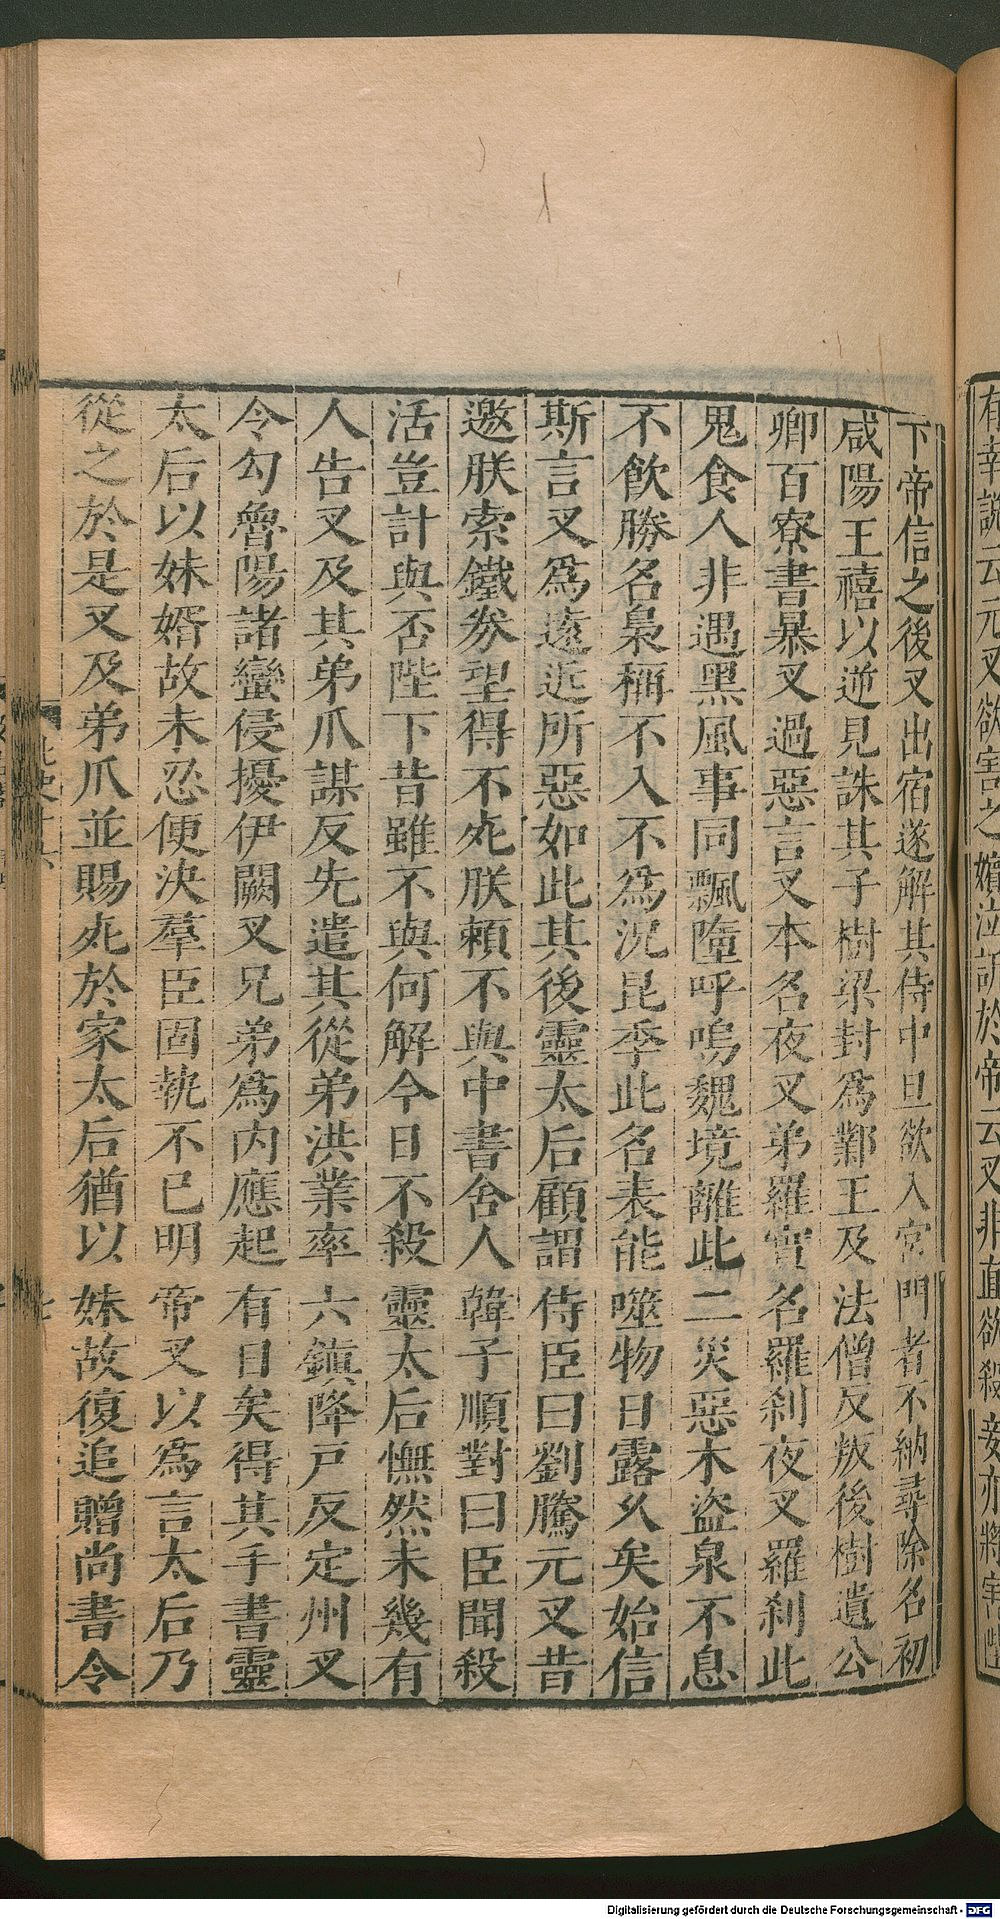 有幸說云元叉欲害之嬪泣訴於帝云叉非直欲殺妾亦將害陛
下帝信之後叉出宿遂解其侍中旦欲入宮門者不納尋除名初
咸陽王禧以逆見誅其子樹梁封為鄴王及法僧反叛後樹遺公
卿百寮書暴叉過惡言叉本名夜叉弟羅實名羅刹夜叉羅刹此
鬼食人非遇黑風事同飄墮呼嗚魏境離此二災惡木盜泉不息
不飲勝名梟稱不入不為況昆季此名表能噬物日露久矣始信
斯言叉為遠近所惡如此其後靈太后顧謂侍臣曰劉騰元叉昔
邀朕索鐵券望得不死朕賴不與中書舍人韓子順對曰臣聞殺
活豈計與否陛下昔雖不與何解今日不殺靈太后憮然未幾有
人告叉及其弟爪謀反先遣其從弟洪業率六鎮降戶反定州叉
令勾魯陽諸蠻侵擾伊闕叉兄弟為內應起有日矣得其手書靈
太后以妹婿故未忍便決羣臣固執不已明帝又以為言太后乃
從之於是叉及弟爪並賜死於家太后猶以妹故復追贈尚書令
北史十六
七
Digitalisierung gefördert durch die Deutsche Forschungsgemeinschaft - DFG